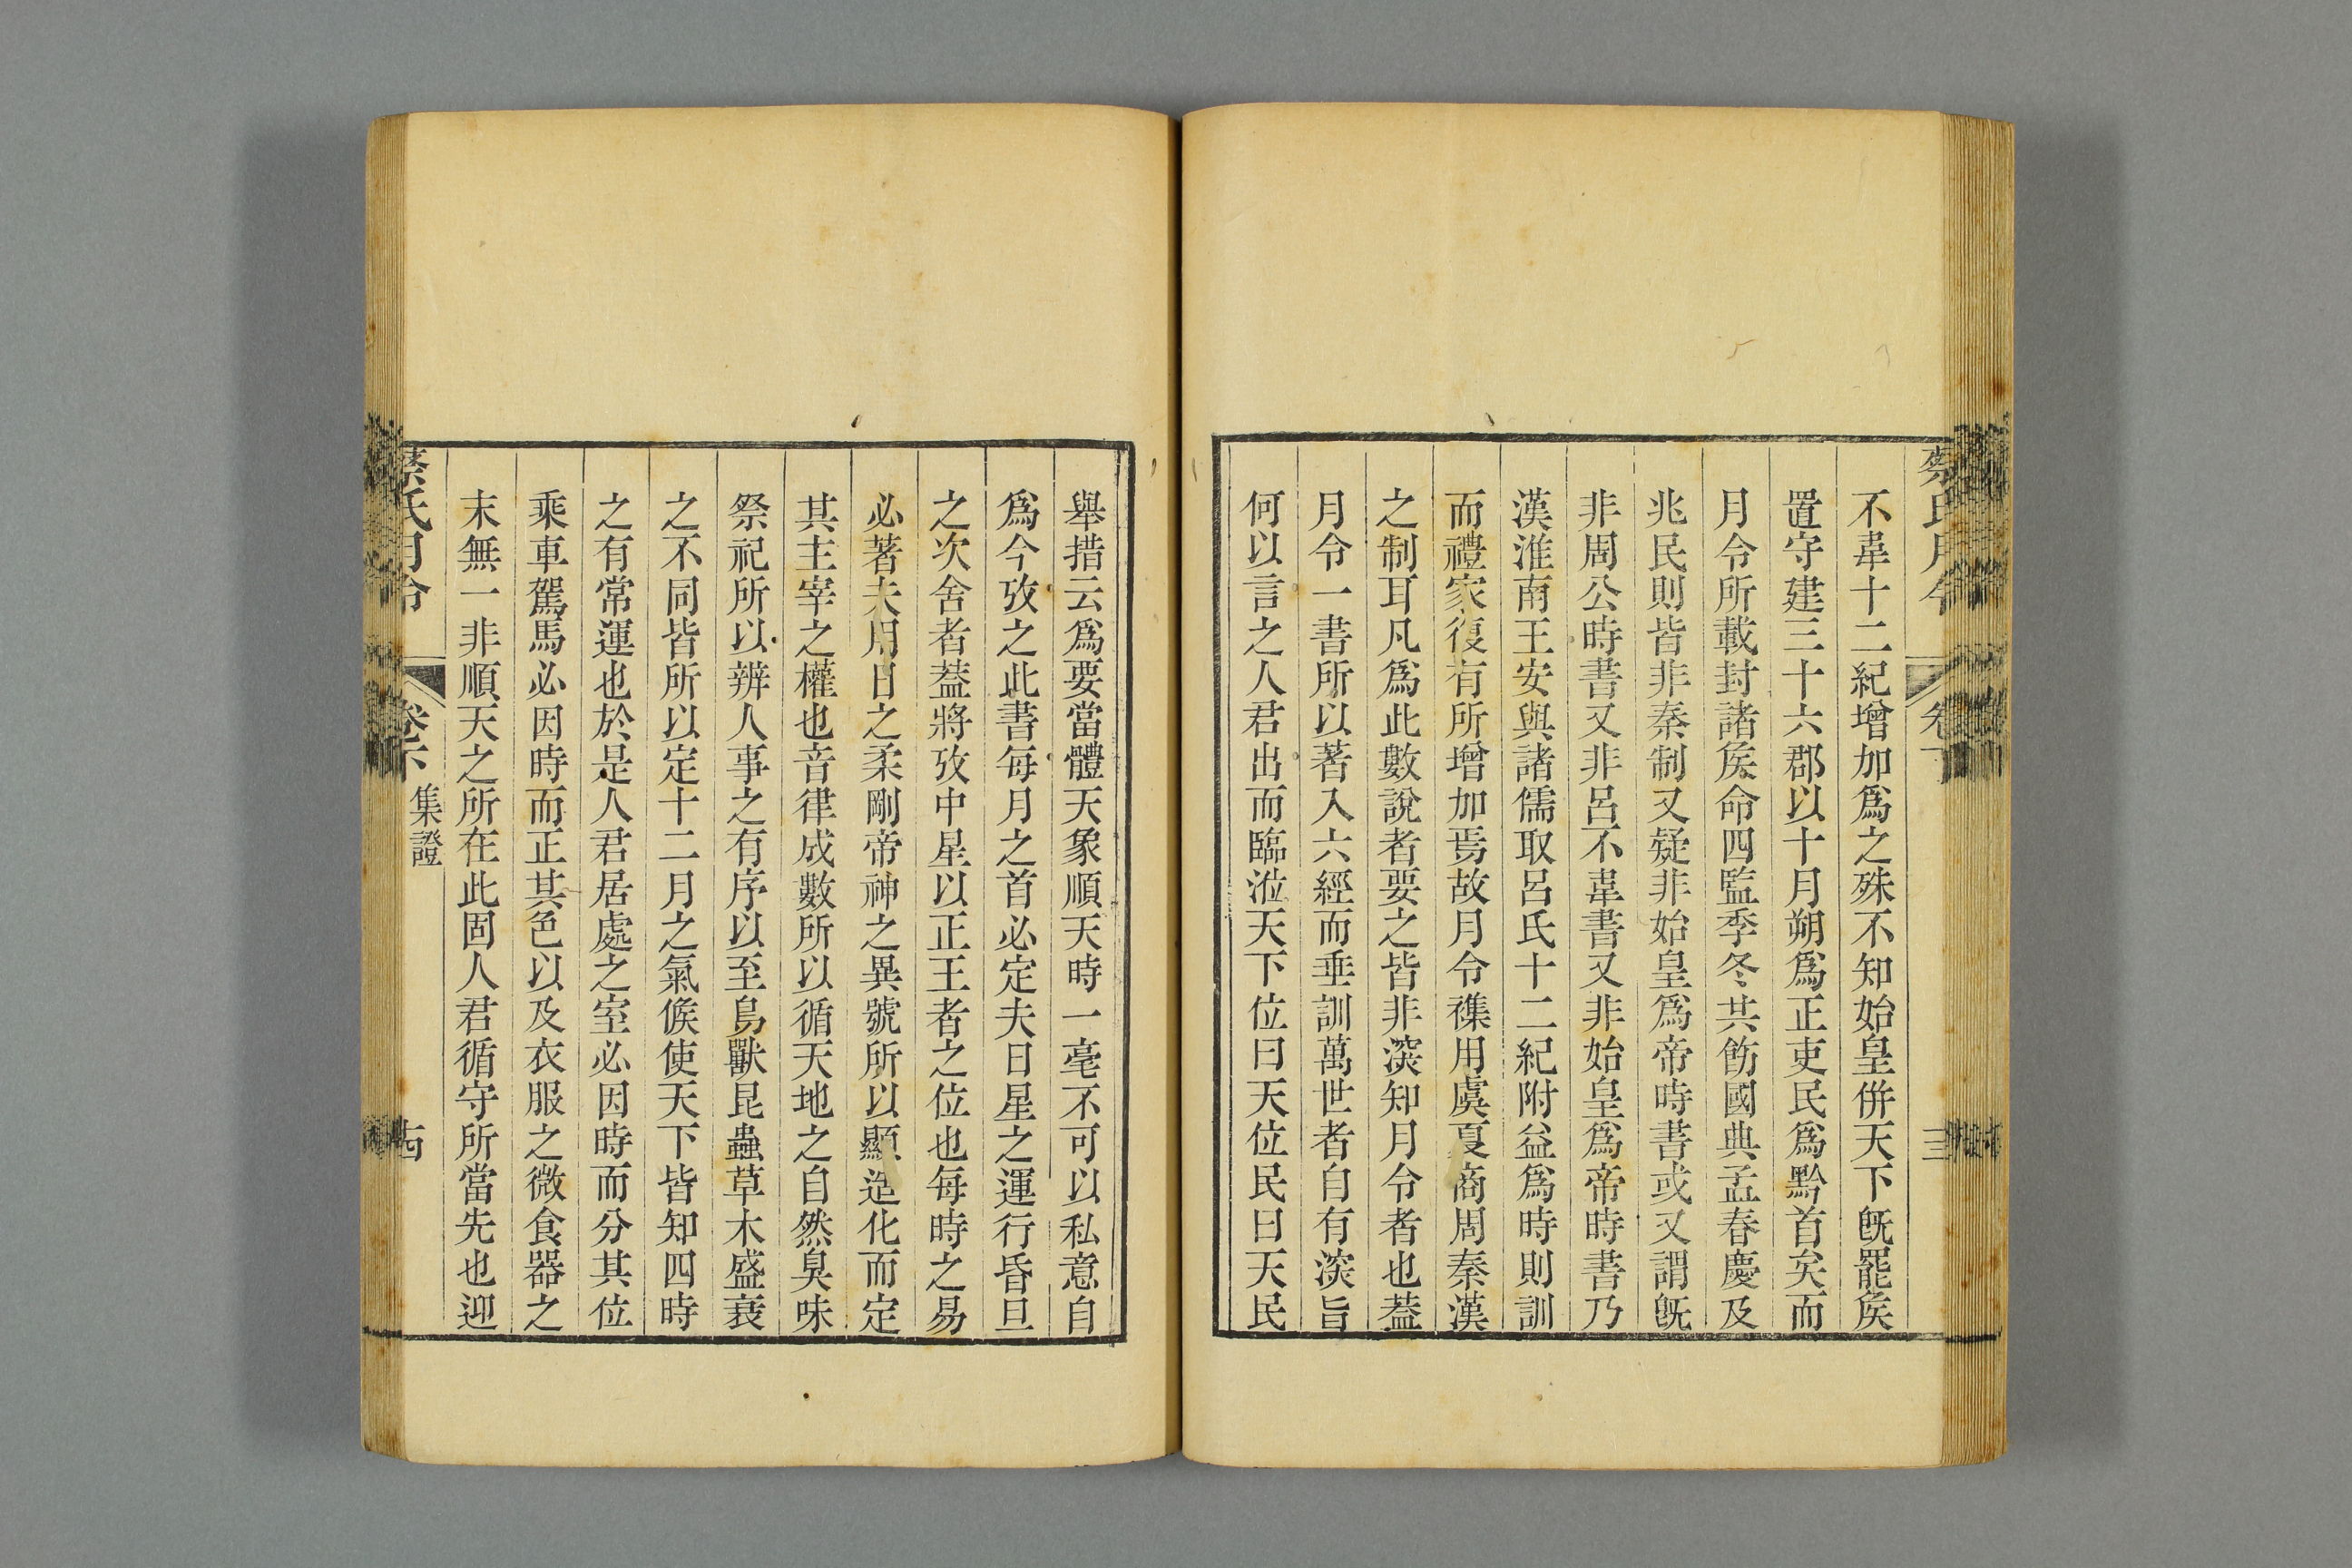 蔡氏月令
卷下
三
不韋十二紀增加爲之殊不知始皇併天下旣罷矦
置守建三十六郡以十月朔爲正吏民爲黔首矣而
月令所載封諸矦命四監季冬共飭國典孟春慶及
兆民則皆非秦制又疑非始皇爲帝時書或又謂旣
非周公時書又非呂不韋書又非始皇爲帝時書乃
漢淮南王安與諸儒取呂氏十二紀附益爲時則訓
而禮家復有所增加焉故月令襍用虞夏商周秦漢
之制耳凡爲此數說者要之皆非深知月令者也葢
月令一書所以著入六經而垂訓萬世者自有深旨
何以言之人君出而臨涖天下位曰天位民曰天民
舉措云爲要當體天象順天時一毫不可以私意自
爲今攷之此書每月之首必定夫日星之運行昏旦
之次舍者葢將攷中星以正王者之位也每時之易
必著夫用日之柔剛帝神之異號所以顯造化而定
其主宰之權也音律成數所以循天地之自然臭味
祭祀所以辨人事之有序以至鳥獸昆蟲草木盛衰
之不同皆所以定十二月之氣候使天下皆知四時
之有常運也於是人君居處之室必因時而分其位
乘車駕馬必因時而正其色以及衣服之微食器之
末無一非順天之所在此固人君循守所當先也迎
蔡氏月令
卷下
集證
古